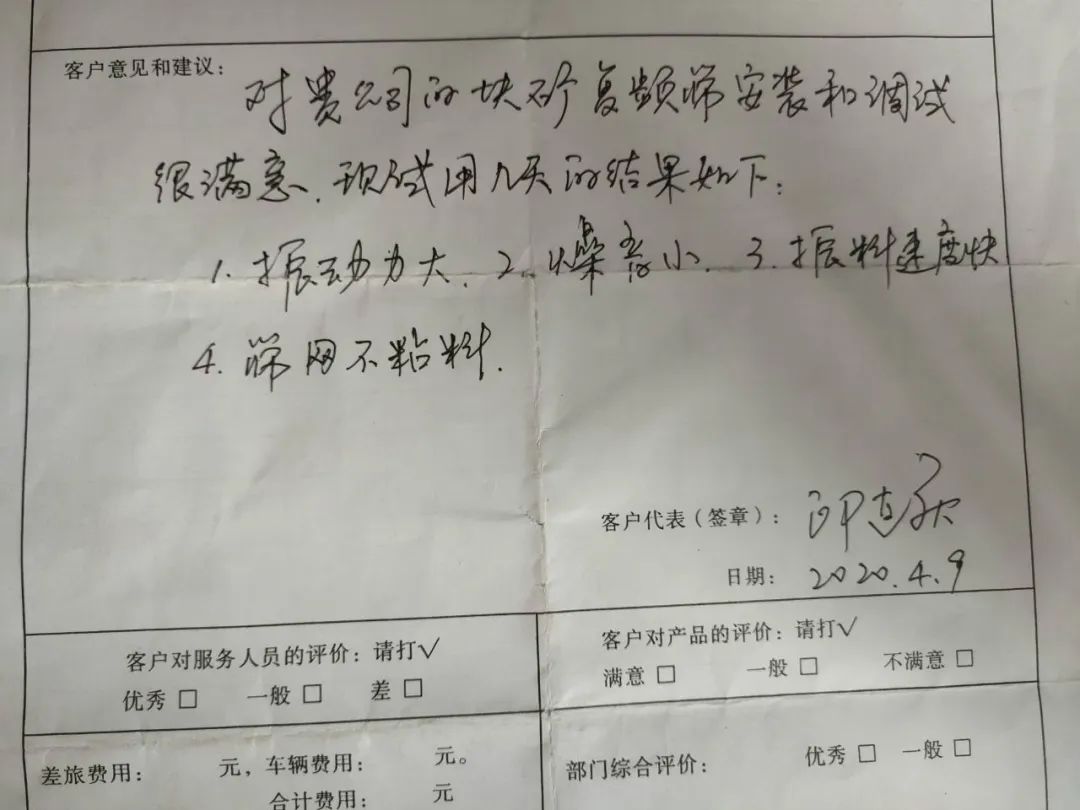 客户意见和建议：
对贵公司的块矿复频筛安装和调试
很满意、现试用几天的结果如下：
1. 振动力大、2. 燥音小、3. 振料速度快
4. 筛网不粘料.
客户代表（签章）：
日期： 2020.4.9
客户对服务人员的评价：请打√
优秀 □ 一般 □ 差 □
客户对产品的评价：请打√
满意 □ 一般 □ 不满意 □
差旅费用： 元，车辆费用： 元。
合计费用： 元
部门综合评价： 优秀 □ 一般 □